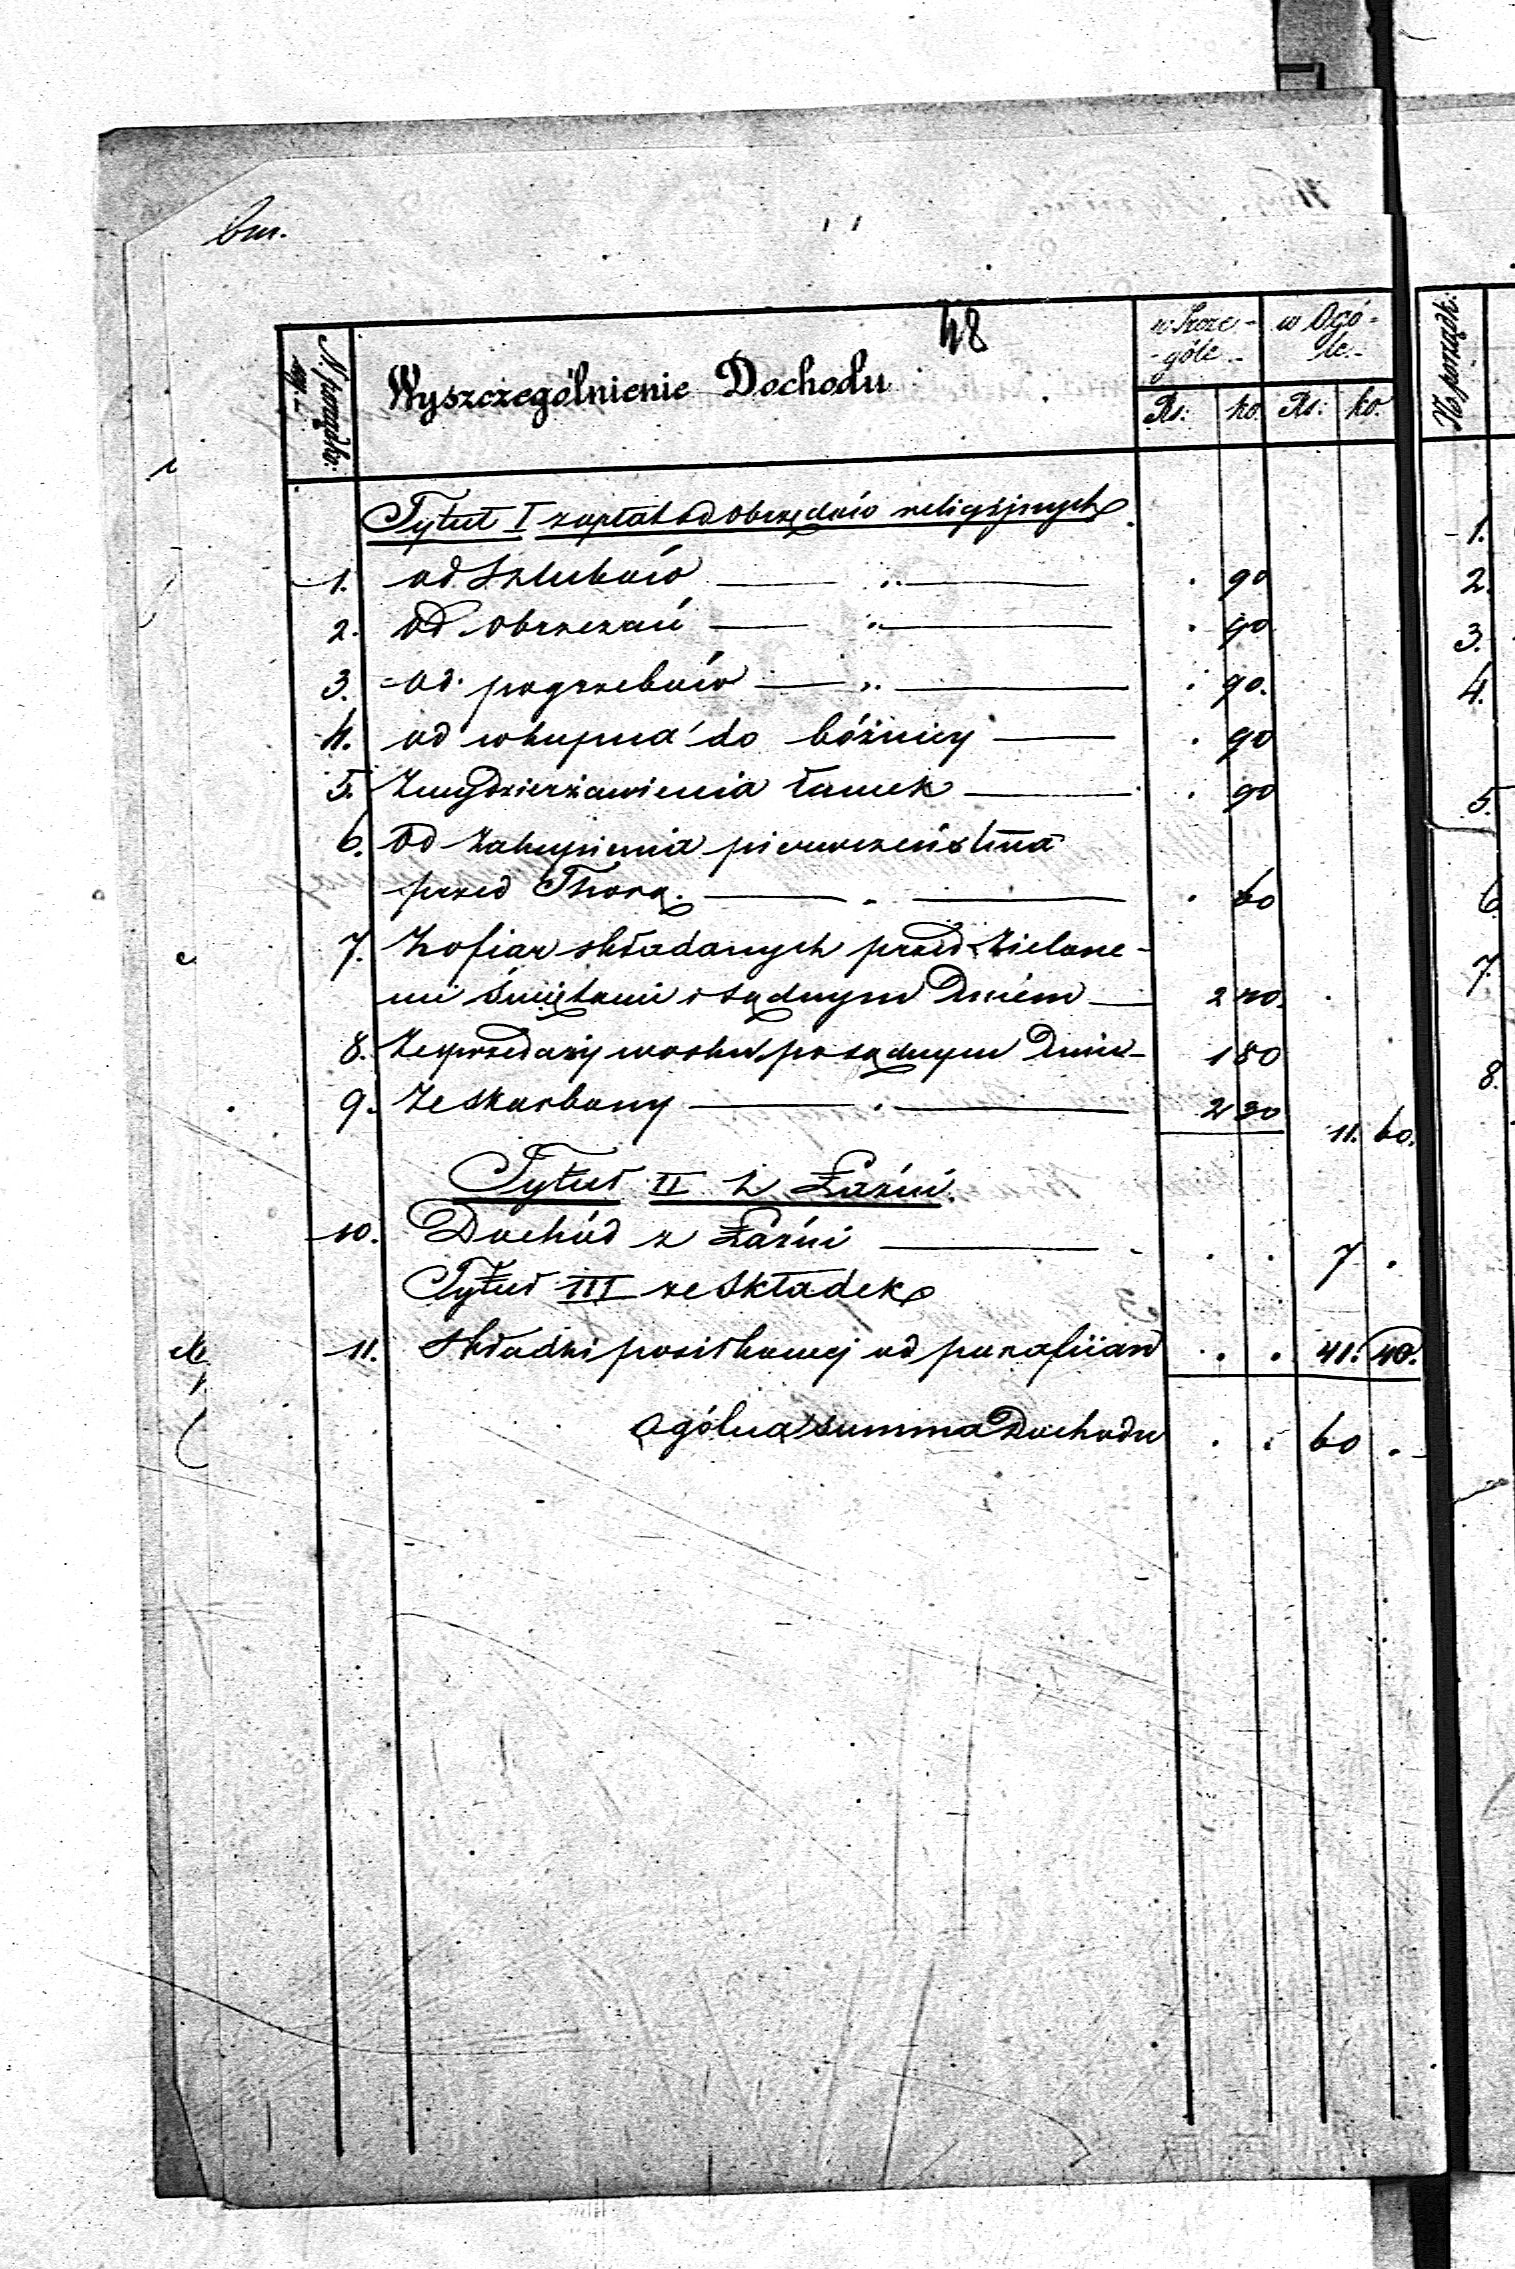 bm.
48
N. porządko-
wy.
Wyszczególnienie Dochodu
w Szcze-
-góle.
w Ogó-
le.
Rs: ko. Rs: ko.
No porządk.
Tytuł I z opłat od obrzędów religijnych
1. od Szlubów 90
2. od obrzezań 90
3. od pogrzebów 90.
4. od wkupna do bóżnicy 90
5. Z wydzierżawienia ławek 90
6. Od zakupienia pierwszeństwa
przed Thorą. 60
7. Z ofiar składanych przed Zielone-
mi Świętami i sądnym Dniem 2 40.
8. Ze sprzedaży wosku po sądnym Dniu 1 50
9. Ze Skarbony 2 30 11. 60.
Tytuł II Z Łaźni.
10. Dochód z Łaźni 7
Tytuł III ze składek
11. Składki posiłkowej od parafiian 41. 40.
Ogólna summa Dochodu 60
1.
2.
3.
4.
5.
6.
7.
8.